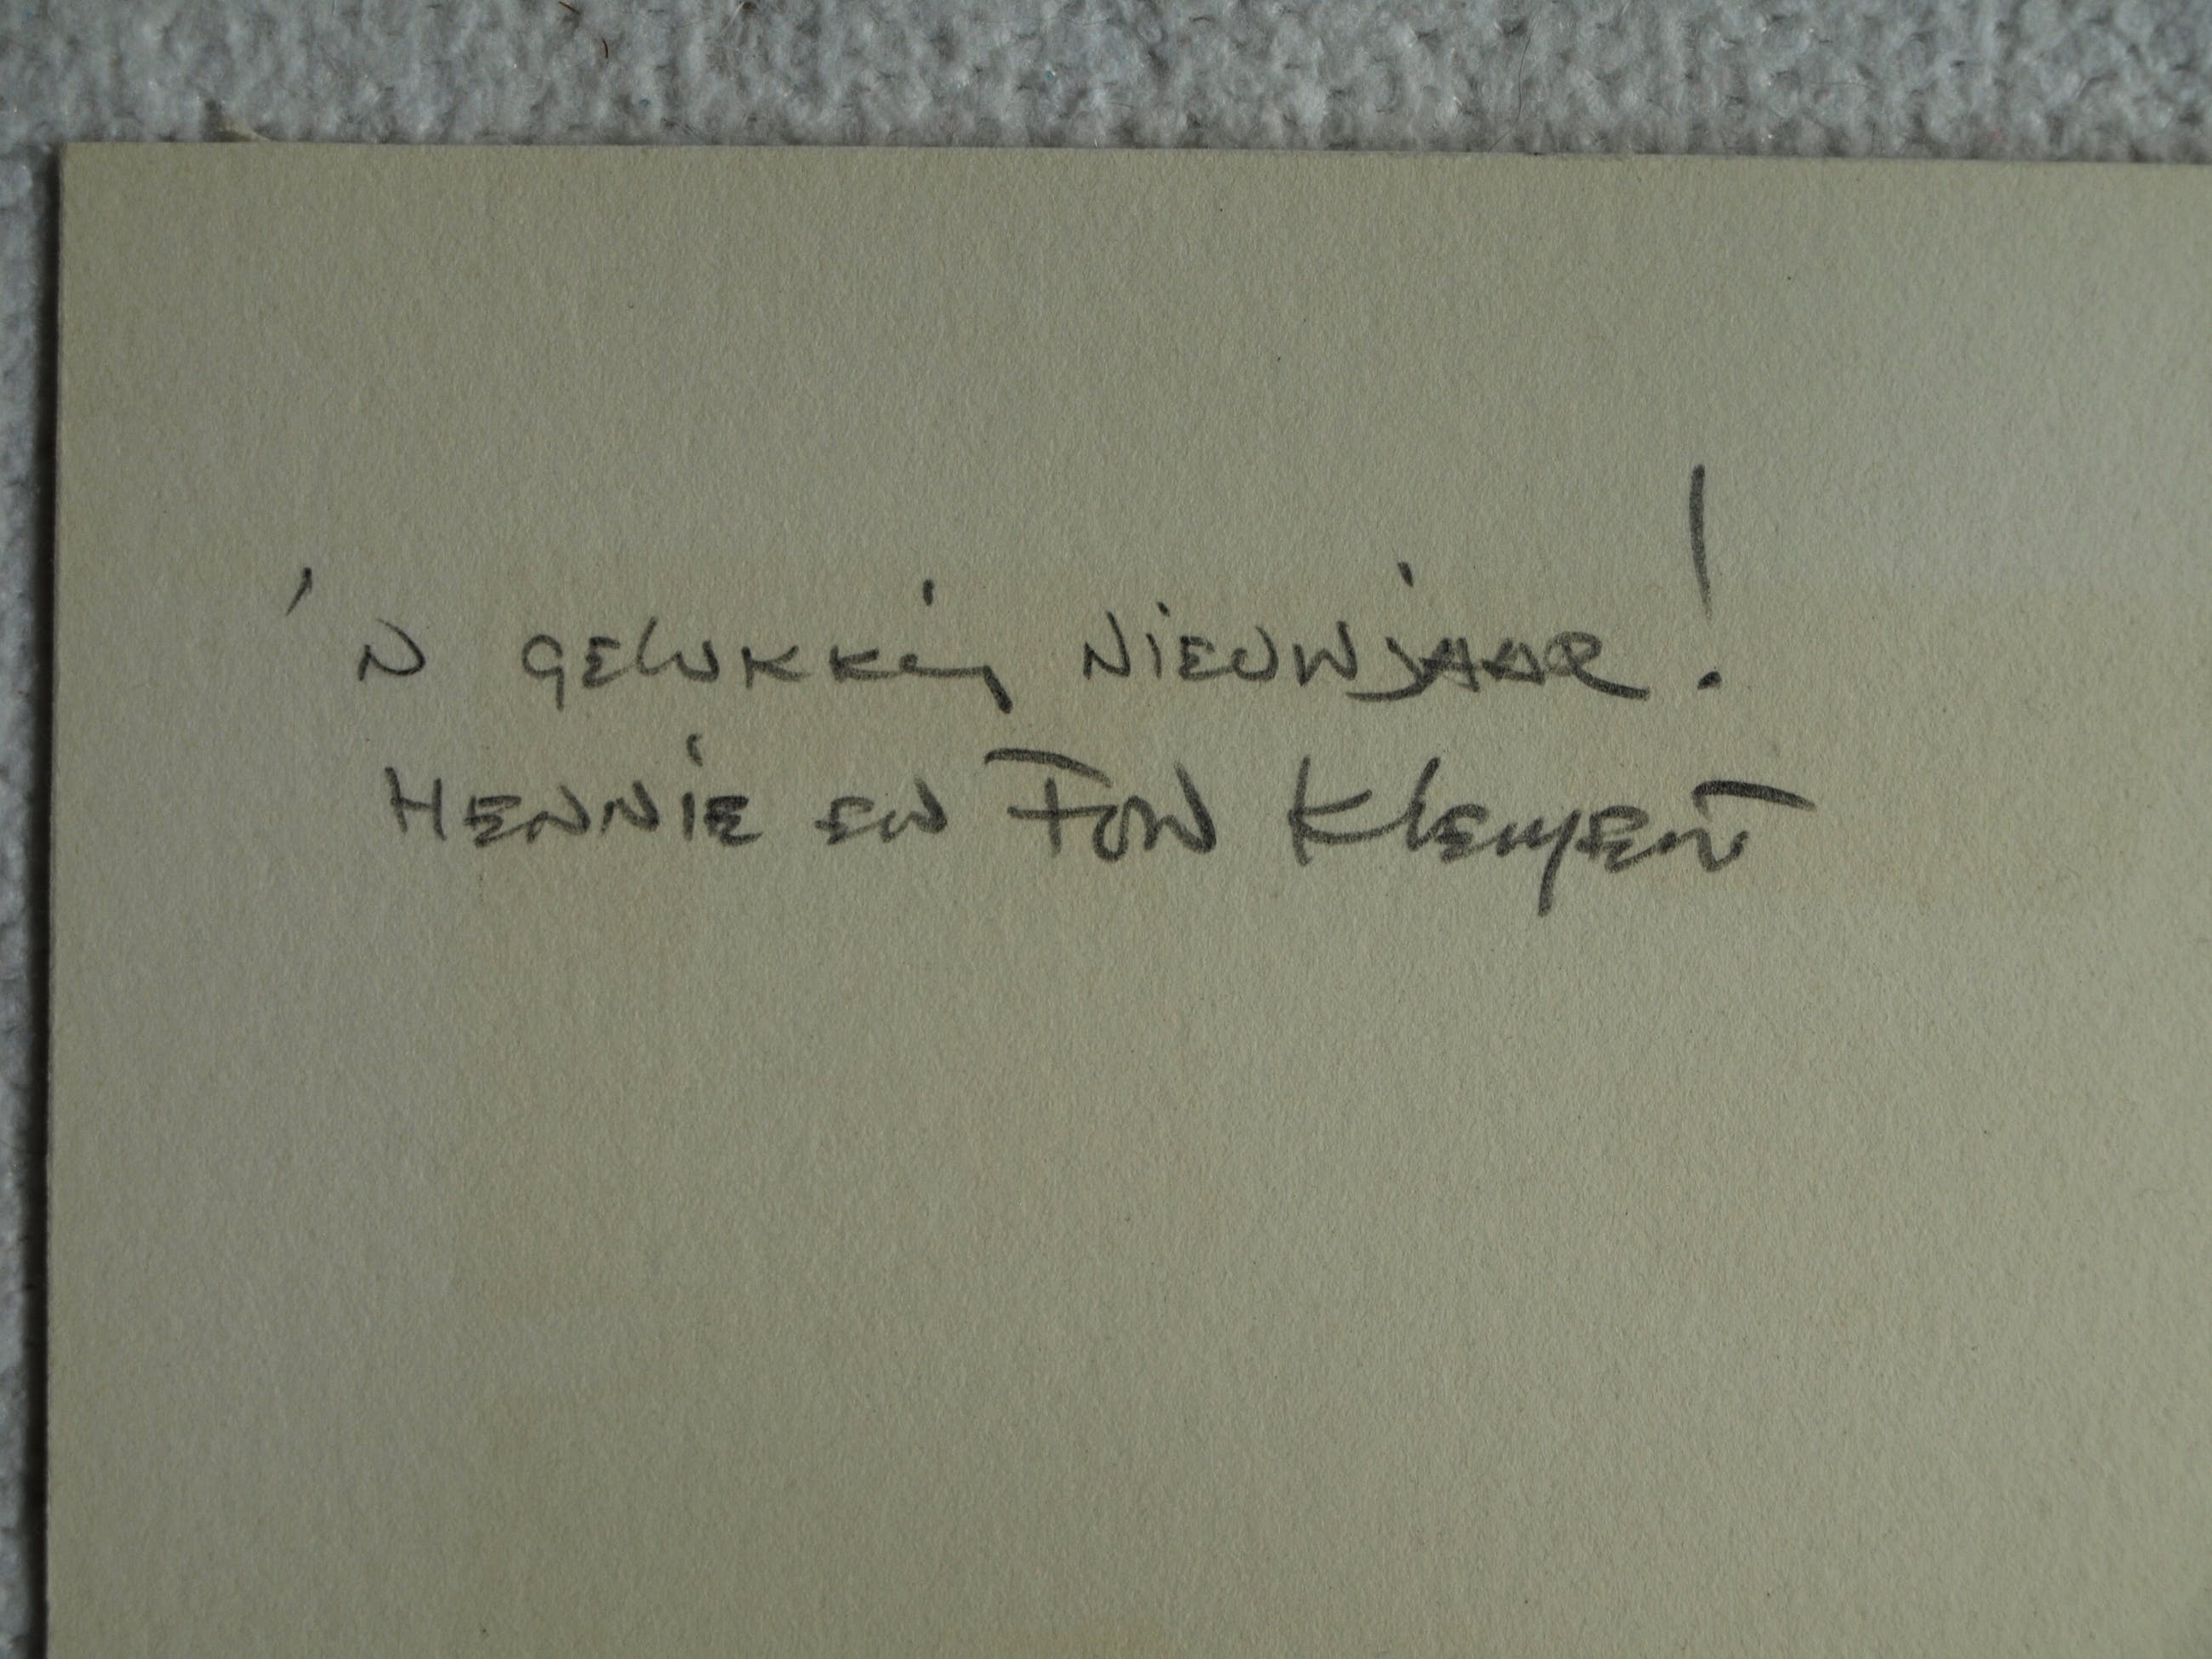 'N GELUKKIG NIEUWJAAR!
HENNIE EN FON KLEMENT